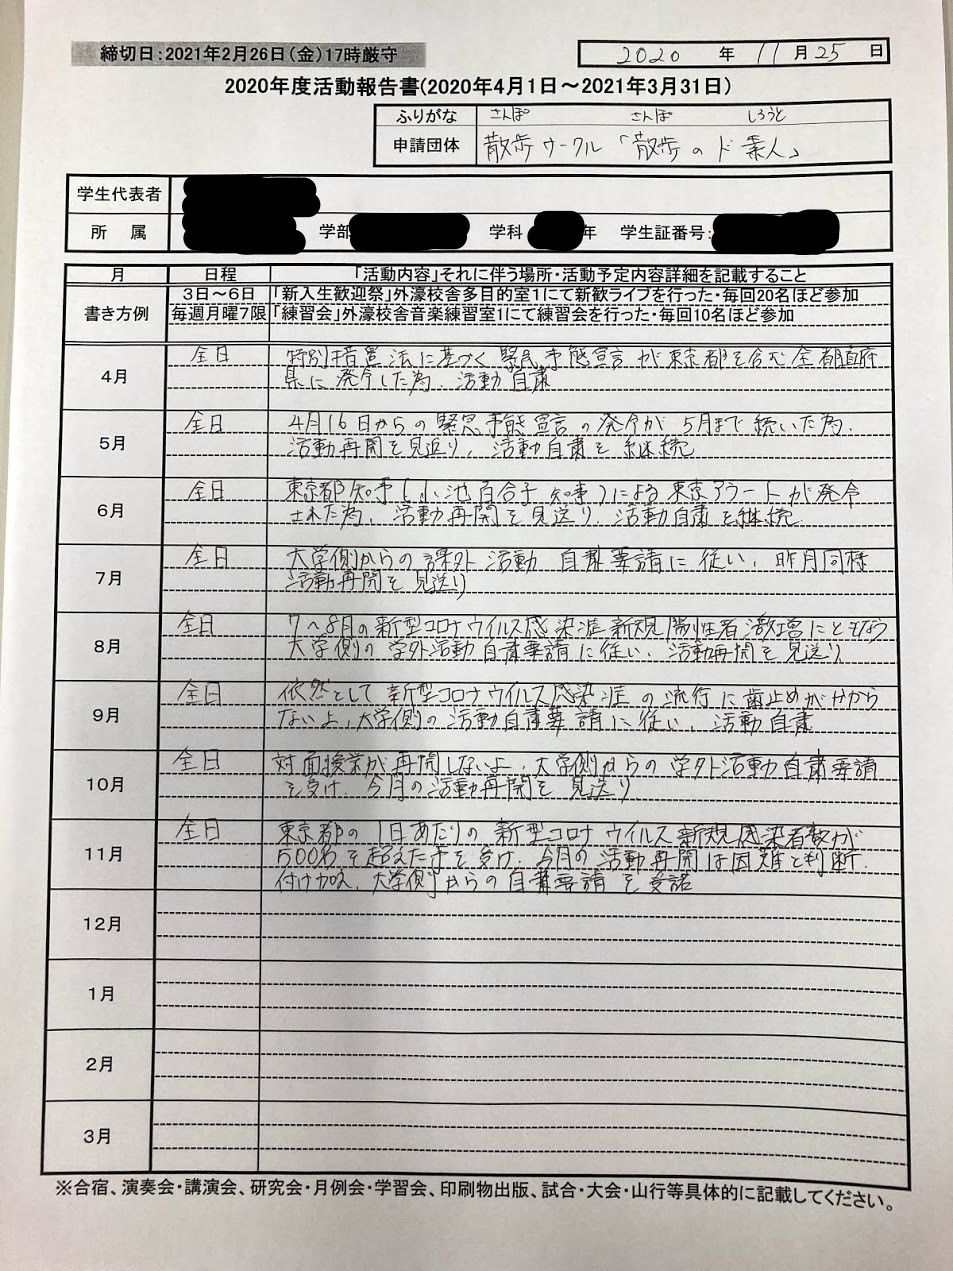 締切日:2021年2月26日(金)17時厳守
2020年 11月25日
2020年度活動報告書(2020年4月1日～2021年3月31日)
ふりがな さんぽ さんぽ しろうと
申請団体 散歩サークル「散歩のド素人」
学生代表者
所 属 学部 学科 年 学生証番号:
月 日程 「活動内容」それに伴う場所・活動予定内容詳細を記載すること
書き方例 3日～6日 「新入生歓迎祭」外濠校舎多目的室1にて新歓ライブを行った・毎回20名ほど参加
毎週月曜7限 「練習会」外濠校舎音楽練習室1にて練習会を行った・毎回10名ほど参加
4月 全日 特別措置法に基づく緊急事態宣言が東京都を含む全都道府
県に発令した為、活動自粛
5月 全日 4月16日からの緊急事態宣言の発令が5月まで続いた為、
活動再開を見送り、活動自粛を継続
6月 全日 東京都知事(小池百合子知事)による東京アラートが発令
された為、活動再開を見送り、活動自粛を継続
7月 全日 大学側からの課外活動自粛要請に従い、昨月同様
活動再開を見送り
8月 全日 7～8月の新型コロナウイルス感染症新規陽性者激増にともなう
大学側の学外活動自粛要請に従い、活動再開を見送り
9月 全日 依然として新型コロナウイルス感染症の流行に歯止めがかから
ないよ、大学側の活動自粛要請に従い、活動自粛
10月 全日 対面授業が再開しないよ、大学側からの学外活動自粛要請
を受け、今月の活動再開を見送り
11月 全日 東京都の1日あたりの新型コロナウイルス新規感染者数が
500名を超えた事を受け、今月の活動再開は困難と判断、
付け加え、大学側からの自粛要請を受諾
12月
1月
2月
3月
※合宿、演奏会・講演会、研究会・月例会・学習会、印刷物出版、試合・大会・山行等具体的に記載してください。